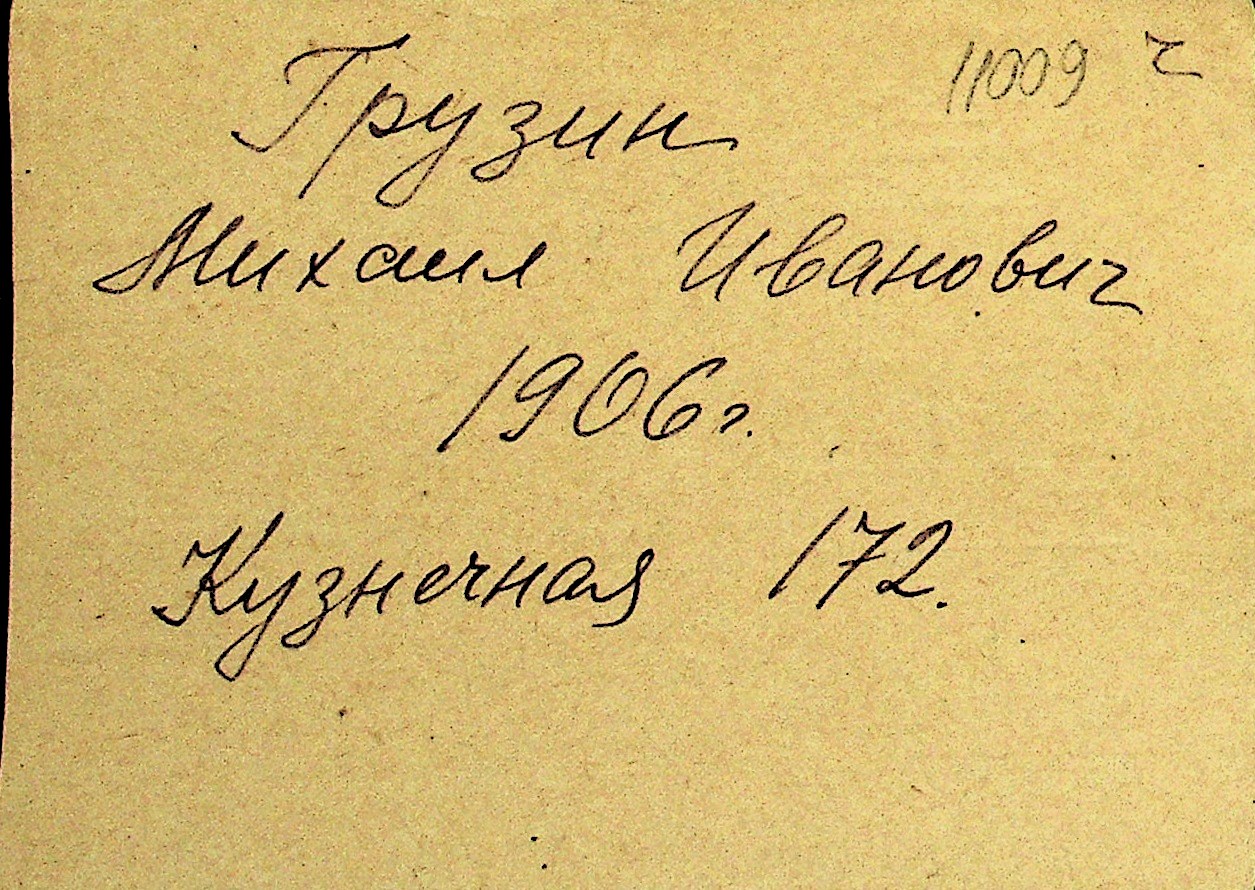 11009 ч
Грузин
Михаил Иванович
1906 г.
Кузнечная 172.